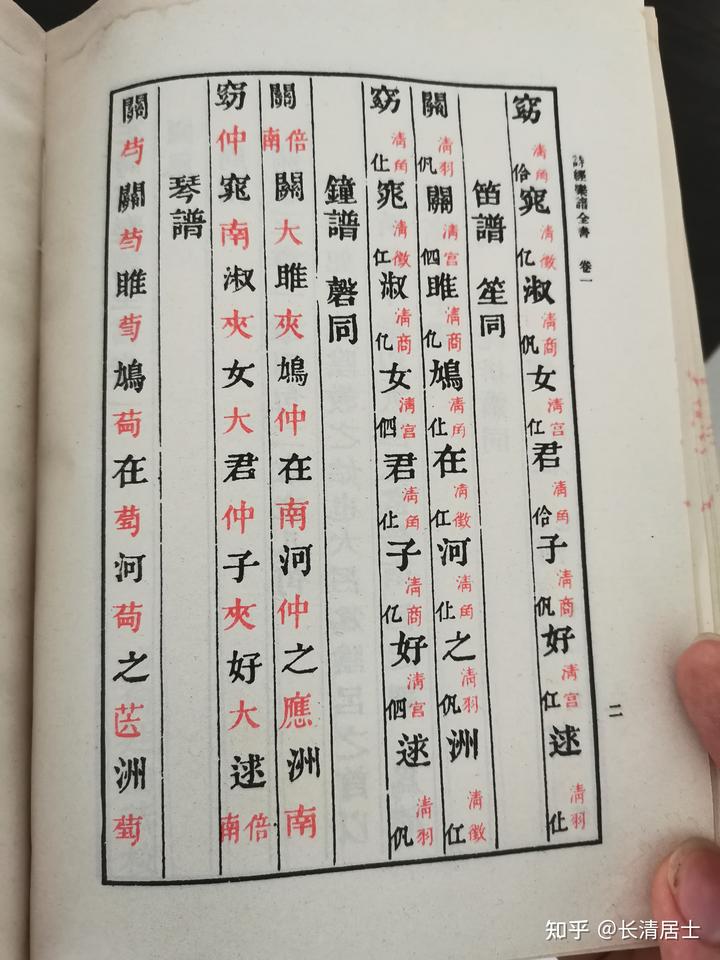 詩經樂譜全書 卷一
二
窈 清角 佮 窕 清徵 亿 淑 清商 女 清宮 仜 君 清角 佮 子 清商 好 清宮 仜 逑 清羽 仩
笛譜 笙同
關 清羽 關 清宮 伵 雎 清商 亿 鳩 清角 仩 在 清徵 仜 河 清角 仩 之 清羽 洲 清徵 仜
窈 清角 仩 窕 清徵 仜 淑 清商 亿 女 清宮 伵 君 清角 仩 子 清商 亿 好 清宮 伵 逑 清羽
鐘譜 磬同
關 倍南 關 大 雎 夾 鳩 仲 在 南 河 仲 之 應 洲 南
窈 仲 窕 南 淑 夾 女 大 君 仲 子 夾 好 大 逑 倍南
琴譜
關 關 雎 鳩 在 河 之 洲
知乎 @长清居士